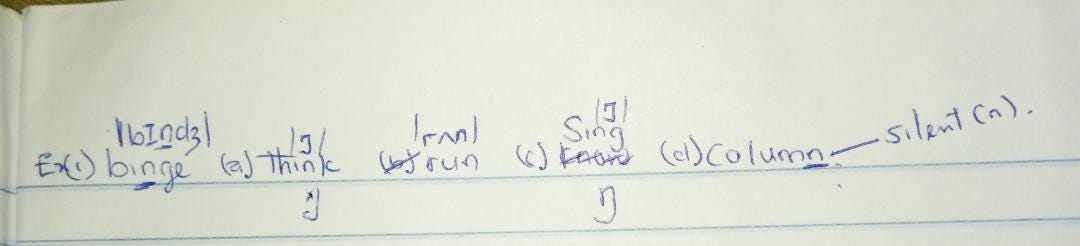 /bɪndʒ/ /ŋ/ /rʌn/ /ŋ/
Ex(1) binge (a) think (b) run (c) Sing (d) column silent (n).
ŋ ŋ